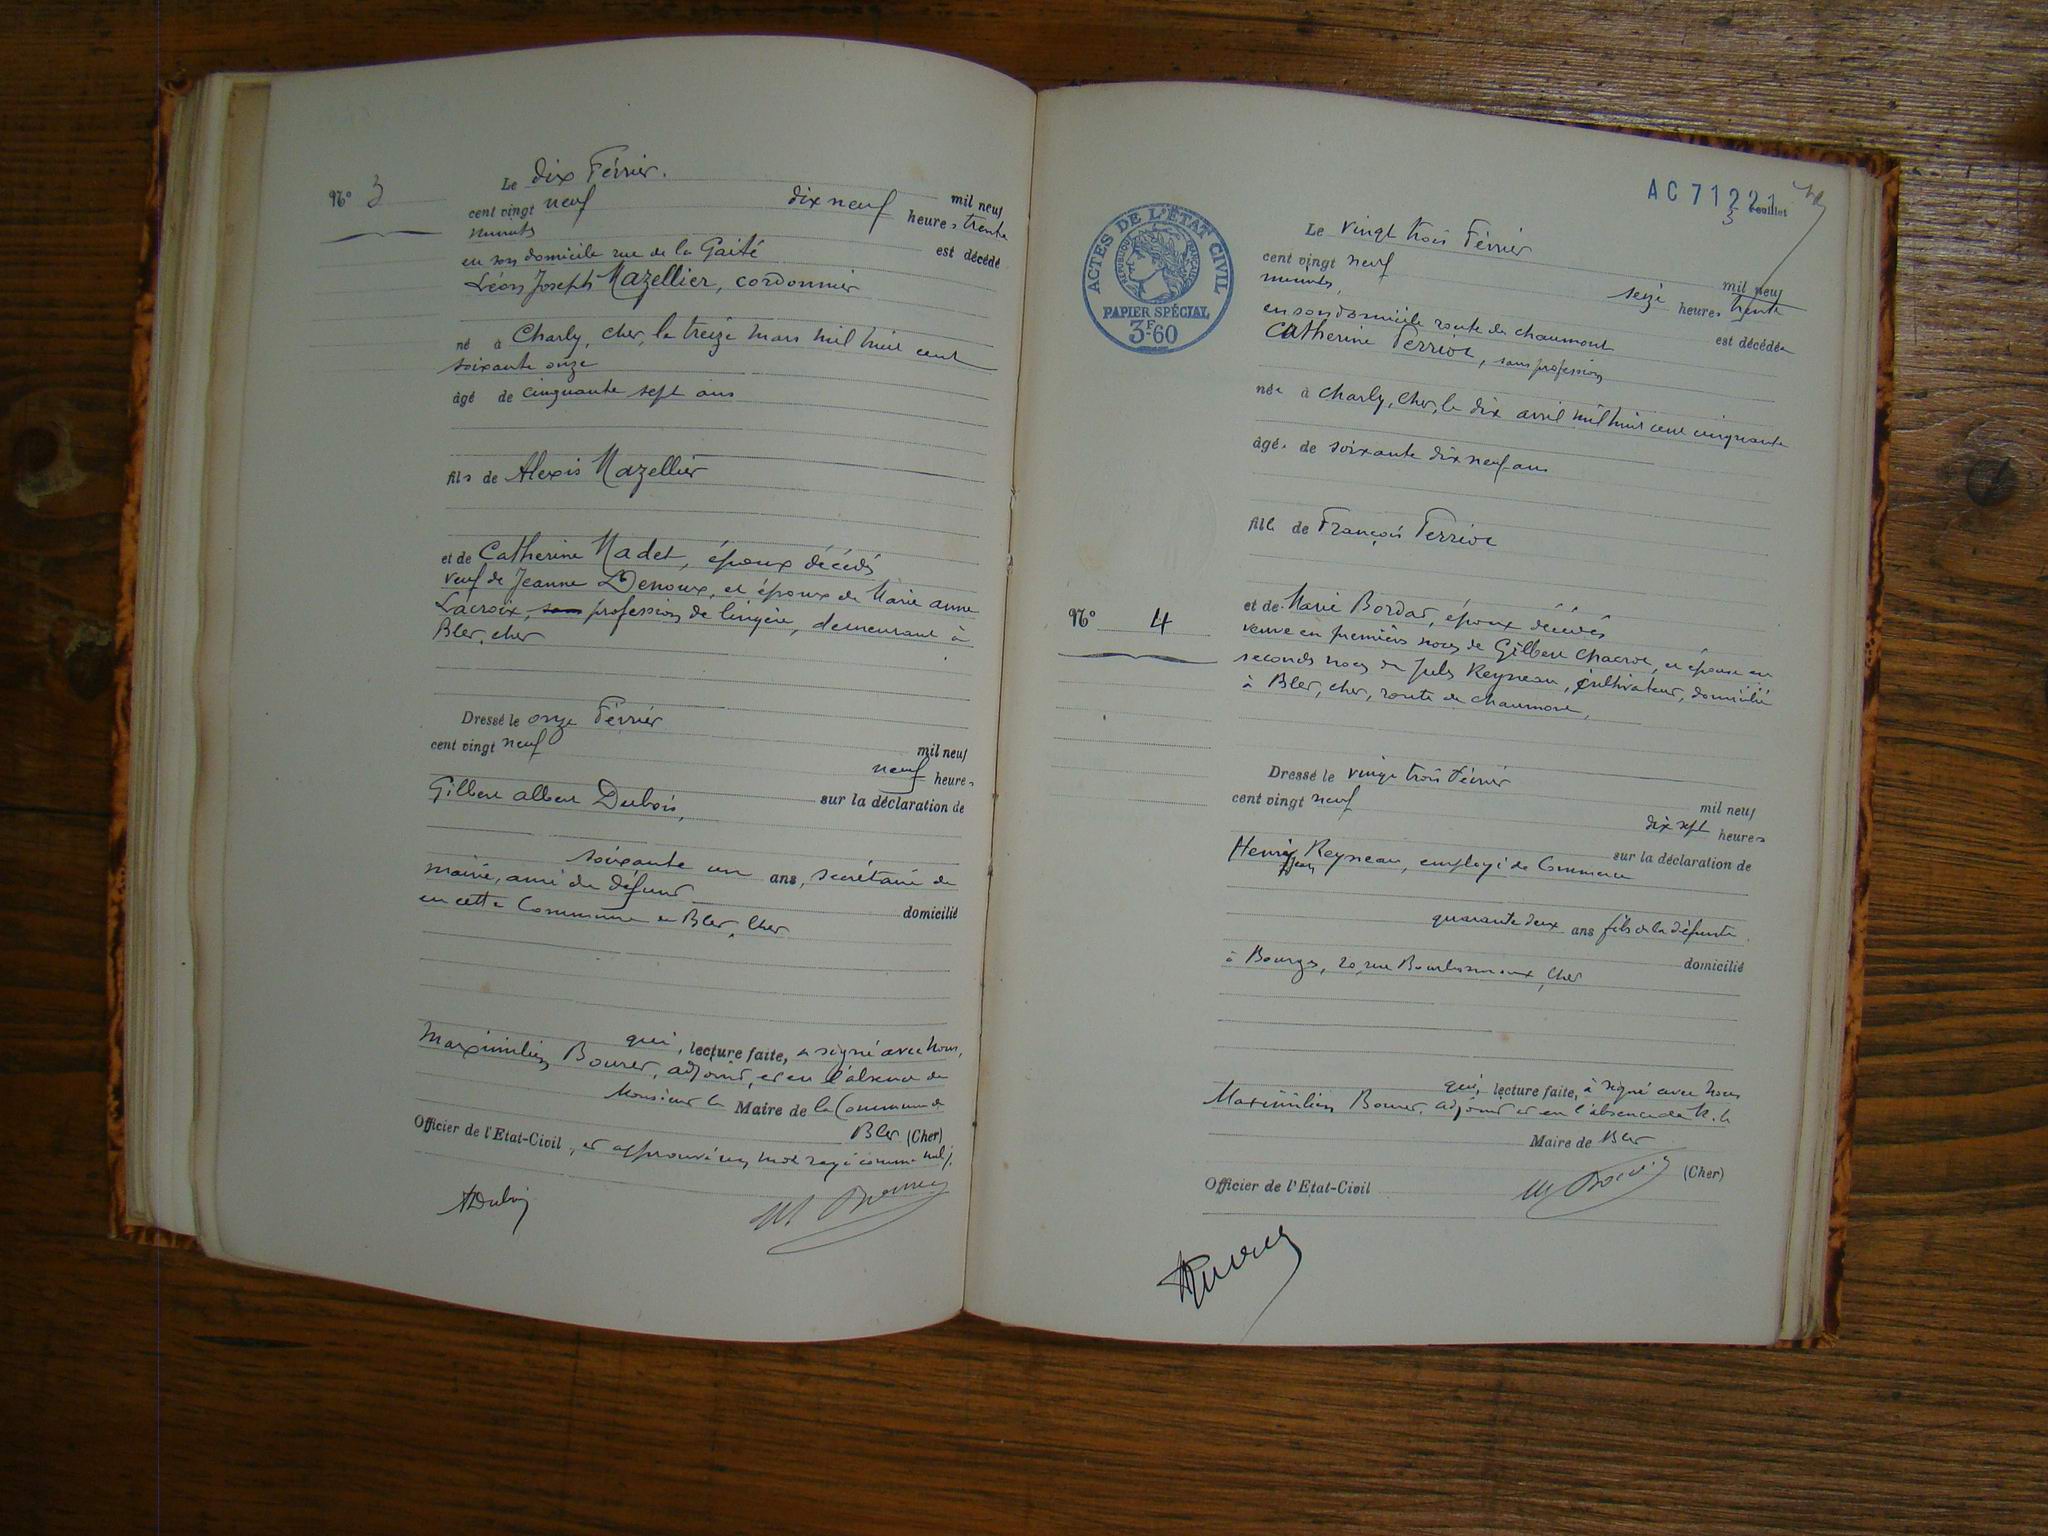 N° 3
Le dix Février. mil neuf
cent vingt neuf dix neuf heures trente
minutes est décédé
en son domicile rue de la Gaité
Léon Joseph Mazellier, cordonnier
né à Charly, cher, le treize mars mil huit cent
soixante onze
âgé de cinquante sept ans
fils de Alexis Mazellier
et de Catherine Nadet, époux décédés
veuf de Jeanne Denoux, et époux de Marie Anne
Lacroix, sans profession de lingère, demeurant à
Blet, cher
Dressé le onze Février mil neuf
cent vingt neuf neuf heures
sur la déclaration de
Gilbert Albert Dubois,
soixante un ans, secrétaire de
mairie, ami du défunt domicilié
en cette Commune de Blet, Cher
qui, lecture faite, a signé avec nous,
Maximilien Bouret, adjoint, et en l'absence de
Monsieur le Maire de la Commune de
Blet (Cher)
Officier de l'Etat-Civil, et approuvé un mot rayé comme nul.
ADubois
AC 71221
3 Feuillet
ACTES DE L'ÉTAT CIVIL
RÉPUBLIQUE FRANÇAISE
PAPIER SPÉCIAL
3F60
Le vingt trois Février mil neuf
cent vingt neuf seize heures trente
minutes, est décédée
en son domicile route de chaumont
Catherine Perriot, sans profession
née à Charly, Cher, le dix avril mil huit cent cinquante
âgée de soixante dix neuf ans
fille de François Perriot
N° 4
et de Marie Bordat, époux décédés
veuve en premières noces de Gilbert Chacrot, et épouse en
seconds noces de Jules Reyneau, cultivateur, domicilié
à Blet, cher, route de chaumont,
Dressé le vingt trois Février mil neuf
cent vingt neuf dix sept heures
sur la déclaration de
Henri Jean Reyneau, employé de Commerce
quarante deux ans fils de la défunte.
domicilié
à Bourges, 20, rue Bourbonnoux, Cher
qui, lecture faite, a signé avec nous
Maximilien Bouret, adjoint et en l'absence de M. le
Maire de Blet
(Cher)
Officier de l'Etat-Civil